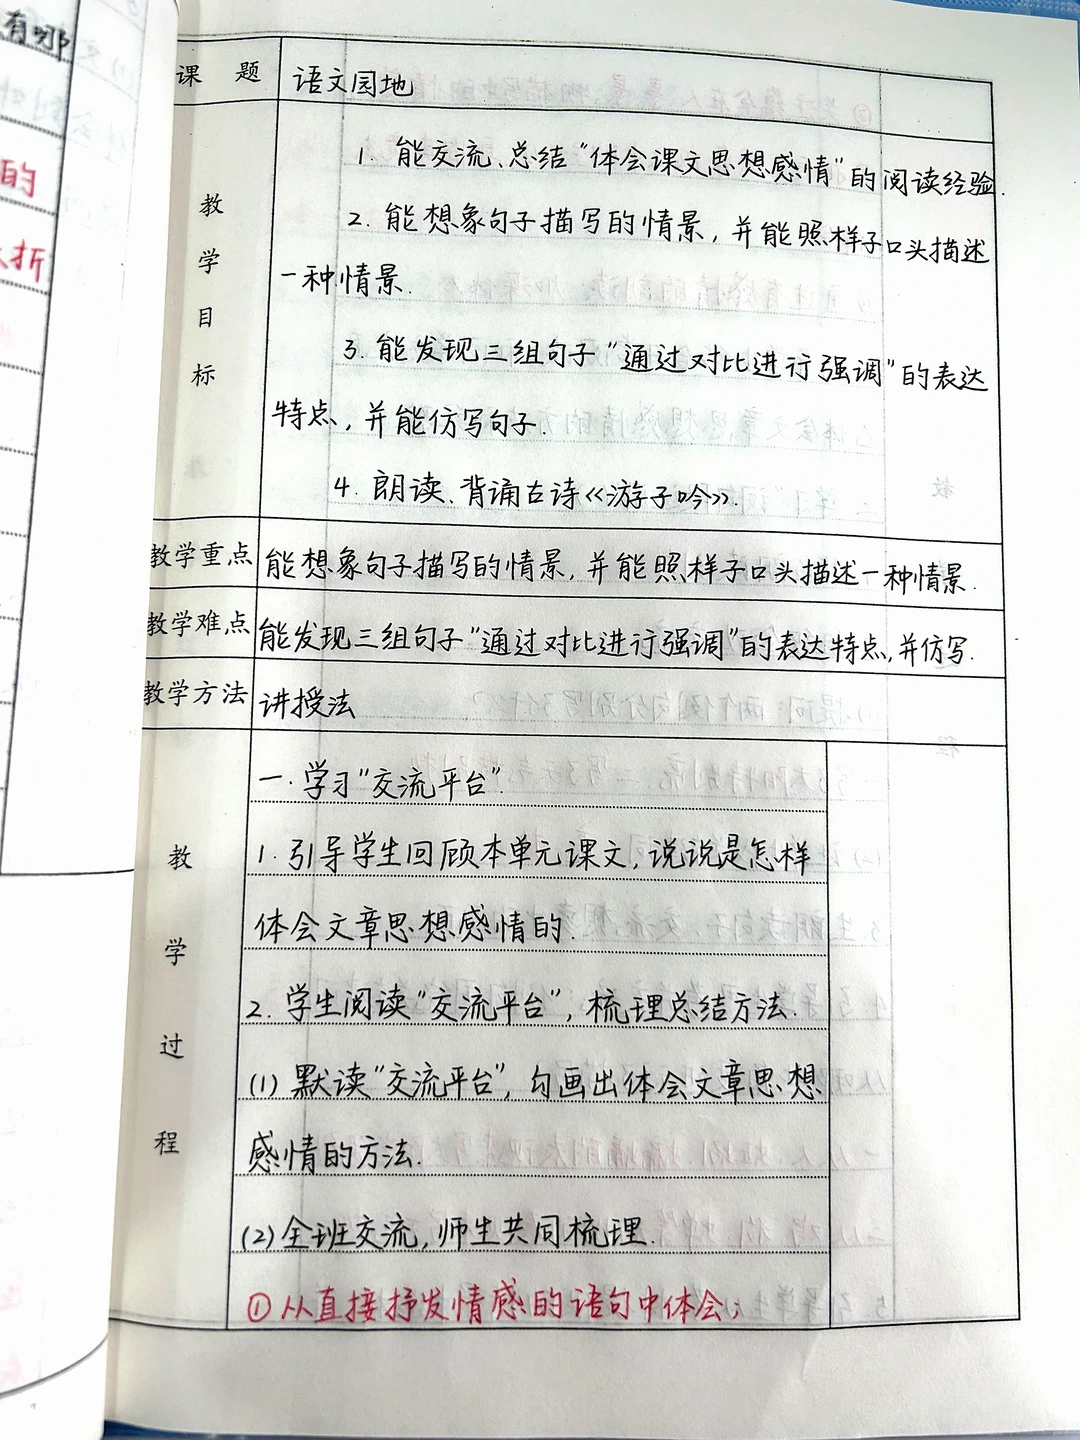 有哪
的
折
课 题 语文园地
教学目标
1. 能交流、总结“体会课文思想感情”的阅读经验.
2. 能想象句子描写的情景, 并能照样子口头描述
一种情景.
3. 能发现三组句子“通过对比进行强调”的表达
特点, 并能仿写句子.
4. 朗读、背诵古诗《游子吟》.
教学重点 能想象句子描写的情景, 并能照样子口头描述一种情景.
教学难点 能发现三组句子“通过对比进行强调”的表达特点, 并仿写.
教学方法 讲授法
教学过程
一. 学习“交流平台”.
1. 引导学生回顾本单元课文, 说说是怎样
体会文章思想感情的.
2. 学生阅读“交流平台”, 梳理总结方法.
(1) 默读“交流平台”, 勾画出体会文章思想
感情的方法.
(2) 全班交流, 师生共同梳理.
①从直接抒发情感的语句中体会;